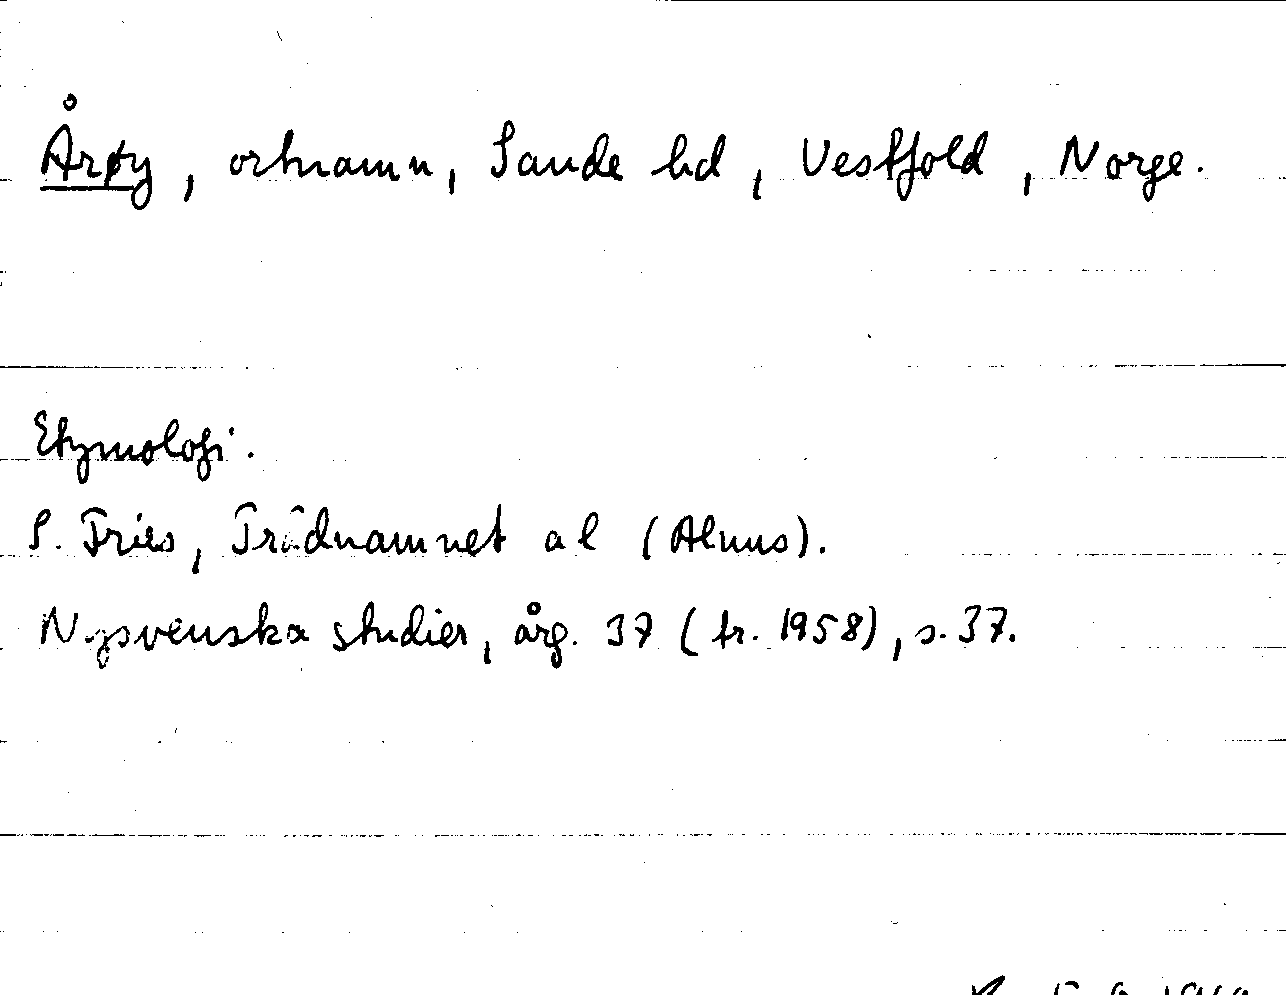 Årøy, ortnamn, Sande hd, Vestfold, Norge.
Etymologi.
S. Fries, Trädnamnet al (Alnus).
Nysvenska studier, årg. 37 (tr. 1958), s. 37.